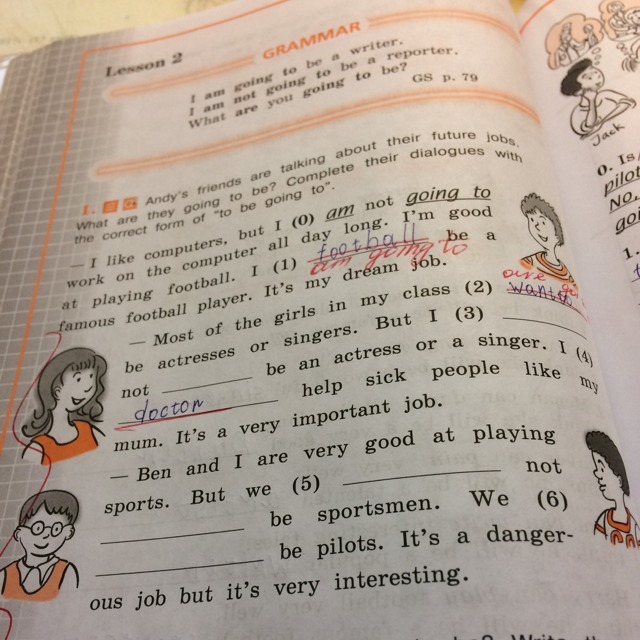 Lesson 2
GRAMMAR
I am going to be a writer.
I am not going to be a reporter.
What are you going to be?
GS p. 79
1. Andy's friends are talking about their future jobs.
What are they going to be? Complete their dialogues with
the correct form of "to be going to".
— I like computers, but I (0) am not going to
work on the computer all day long. I'm good
at playing football. I (1) football be a
am going to
famous football player. It's my dream job.
— Most of the girls in my class (2) wants
are
be actresses or singers. But I (3) ________
not ________ be an actress or a singer. I (4)
doctor help sick people like my
mum. It's a very important job.
— Ben and I are very good at playing
sports. But we (5) ________ not
________ be sportsmen. We (6)
________ be pilots. It's a danger-
ous job but it's very interesting.
Jack
0. Is
pilot
No,
goi
1.